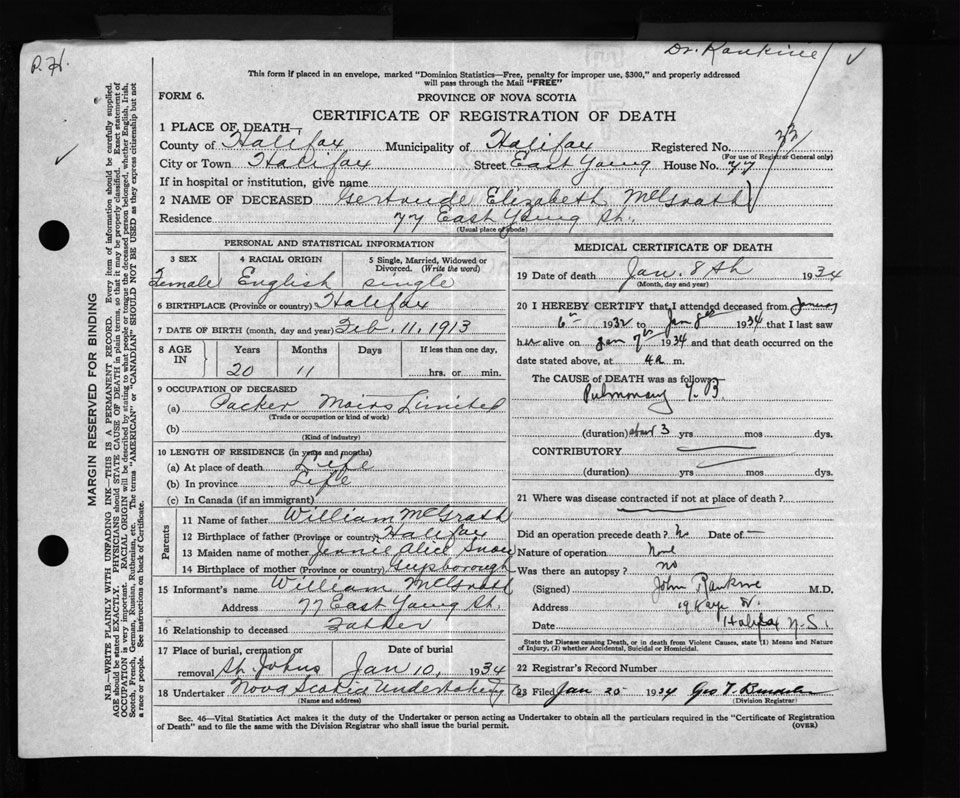 P. H.
Dr. Rankine
This form if placed in an envelope, marked "Dominion Statistics—Free, penalty for improper use, $300," and properly addressed
will pass through the Mail "FREE"
FORM 6.
PROVINCE OF NOVA SCOTIA
CERTIFICATE OF REGISTRATION OF DEATH
1 PLACE OF DEATH—
County of Halifax Municipality of Halifax Registered No. 33
(For use of Registrar General only)
City or Town Halifax Street East Young House No. 77
If in hospital or institution, give name
2 NAME OF DECEASED Gertrude Elizabeth McGrath
Residence 77 East Young St.
(Usual place of abode)
PERSONAL AND STATISTICAL INFORMATION
3 SEX 4 RACIAL ORIGIN 5 Single, Married, Widowed or Divorced. (Write the word)
Female English single
6 BIRTHPLACE (Province or country) Halifax
7 DATE OF BIRTH (month, day and year) Feb. 11, 1913
8 AGE IN Years Months Days If less than one day,
20 11 hrs. or min.
9 OCCUPATION OF DECEASED
(a) Packer Moirs Limited
(Trade or occupation or kind of work)
(b)
(Kind of industry)
10 LENGTH OF RESIDENCE (in years and months)
(a) At place of death Life
(b) In province Life
(c) In Canada (if an immigrant)
Parents
11 Name of father William McGrath
12 Birthplace of father (Province or country) Halifax
13 Maiden name of mother Jennie Alice Snow
14 Birthplace of mother (Province or country) Guysborough
15 Informant's name William McGrath
Address 77 East Young St.
16 Relationship to deceased Father
17 Place of burial, cremation or removal Date of burial
St. Johns Jan 10, 1934
18 Undertaker Nova Scotia Undertaking Co
(Name and address)
MEDICAL CERTIFICATE OF DEATH
19 Date of death Jan. 8th 1934
(Month, day and year)
20 I HEREBY CERTIFY that I attended deceased from January
6th 1932 to Jan 8th 1934 that I last saw
her alive on Jan 7th 1934 and that death occurred on the
date stated above, at 4 a. m.
The CAUSE OF DEATH was as follows:
Pulmonary T.B.
(duration) about 3 yrs mos dys.
CONTRIBUTORY
(duration) yrs mos dys.
21 Where was disease contracted if not at place of death?
Did an operation precede death? No Date of —
Nature of operation None
Was there an autopsy? no
(Signed) John Rankine M.D.
Address 19 Kaye St.
Date Halifax N.S.
State the Disease causing Death, or in death from Violent Causes, state (1) Means and Nature
of Injury, (2) whether Accidental, Suicidal or Homicidal.
22 Registrar's Record Number
23 Filed Jan 25 1934 Geo T.
(Division Registrar)
Sec. 46—Vital Statistics Act makes it the duty of the Undertaker or person acting as Undertaker to obtain all the particulars required in the "Certificate of Registration
of Death" and to file the same with the Division Registrar who shall issue the burial permit. (OVER)
MARGIN RESERVED FOR BINDING
N.B.—WRITE PLAINLY WITH UNFADING INK—THIS IS A PERMANENT RECORD. Every item of information should be carefully supplied.
AGE should be stated EXACTLY. PHYSICIANS should STATE CAUSE OF DEATH in plain terms, so that it may be properly classified. Exact statement of
OCCUPATION is very important. RACIAL ORIGIN will be described by stating to what people or tongue the deceased person belonged, whether English, Irish,
Scotch, French, German, Russian, Ruthenian, etc. The terms "AMERICAN" or "CANADIAN" SHOULD NOT BE USED as they express citizenship but not
a race or people. See instructions on back of Certificate.